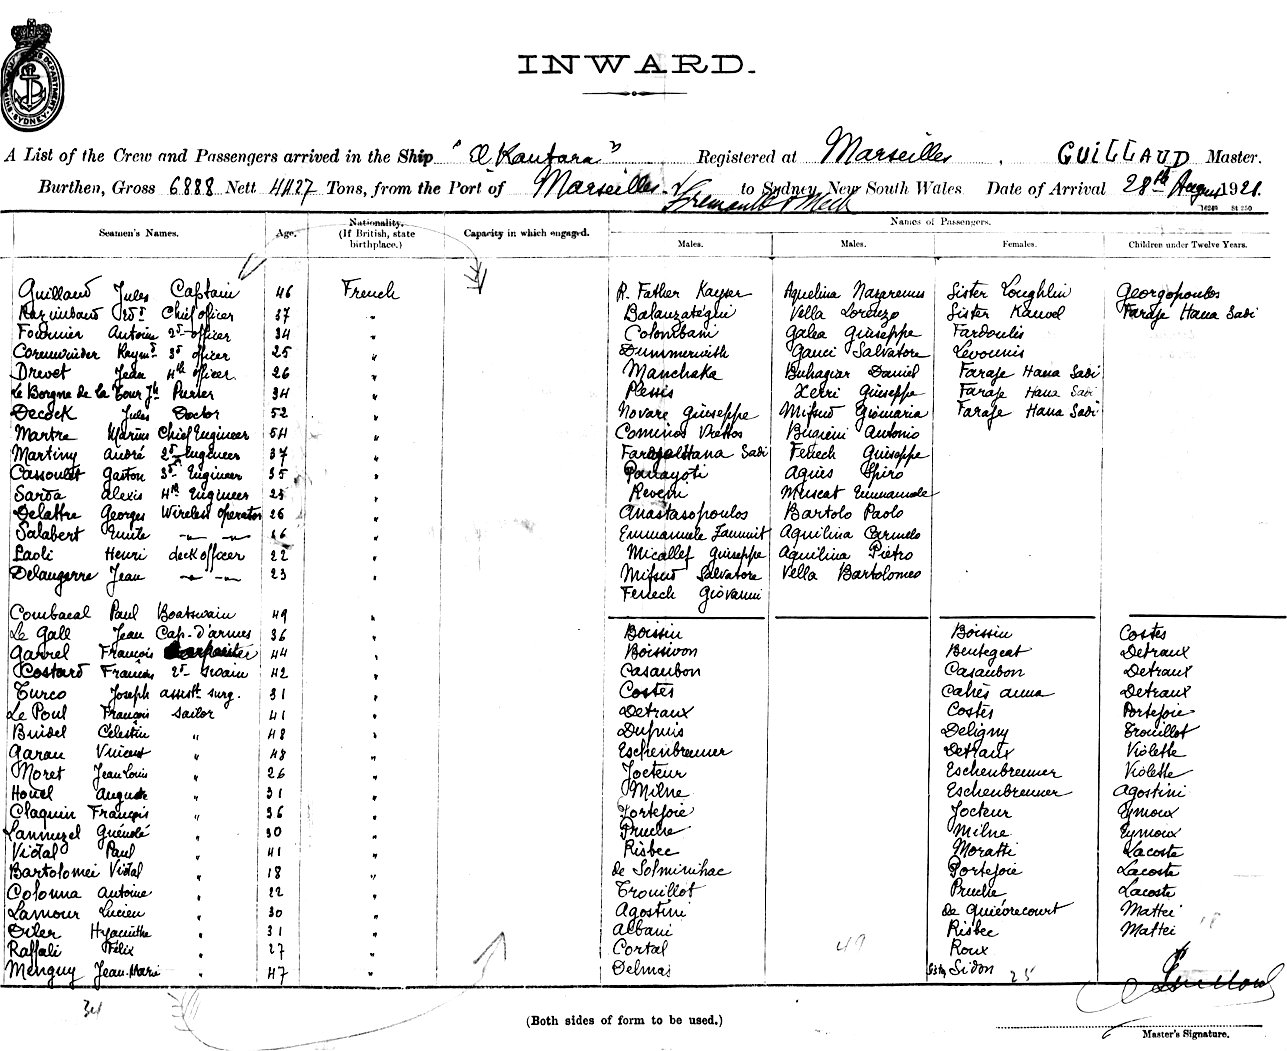 INWARD.
A List of the Crew and Passengers arrived in the Ship "El Kantara" Registered at Marseilles, GUILLAUD Master.
Burthen, Gross 6888 Nett 4427 Tons, from the Port of Marseilles to Sydney New South Wales Date of Arrival 28th August 1921.
Fremantle & Melb
Seamen's Names. Age. Nationality. (If British, state birthplace.) Capacity in which engaged. Names of Passengers.
Males. Males. Females. Children under Twelve Years.
Guillaud Jules Captain 46 French R. Father Kayser Aquilina Nazarenus Sister Loughlin Georgopoulos
1st Chief officer 37 " Balanzategui Vella Lorenzo Sister Farage Hana Sadi
Fournier Antoine 2d officer 34 " Colombani Galea Giuseppe Fardoulis
Corenwinder Raymd 3d officer 25 " Gauci Salvatore Levounis
Drevet Jean 4th officer 26 " Manchaka Buhagiar Daniel Farage Hana Sadi
Le Borgne de la Tour Jh Purser 34 " Plessis Xerri Giuseppe Farage Hana Sadi
Decock Jules Doctor 52 " Novare Giuseppe Mifsud Gismaria Farage Hana Sadi
Martre Marius Chief Engineer 54 " Cominos Vrettos Bugieni Antonio
Martiny André 2d Engineer 37 " Hana Sadi Fenech Giuseppe
Cassoulet Gaston 3d Engineer 35 " Panayoti Agnès Spiro
Sarda Alexis 4th Engineer 23 " Muscat Emmanuele
Delattre Georges Wireless operator 26 " Anastasopoulos Bartolo Paolo
Salabert Emile 26 " Emmanuele Zammit Aquilina Carmelo
Paoli Henri deck officer 22 " Micallef Giuseppe Aquilina Pietro
Delaugerre Jean 23 " Mifsud Salvatore Vella Bartolomeo
Fenech Giovanni
Combacal Paul Boatswain 49 "
Le Gall Jean Cap. d'armes 36 " Boissin Boissin Costes
Gavrel François Carpenter 44 " Boissivon Bentegeat Detraux
Costard François 2d Swain 42 " Casaubon Casaubon Detraux
Turco Joseph assistt surg. 31 " Costes Cahès anna Detraux
Le Poul François sailor 41 " Detraux Costes Portejoie
Buidel Celestin " 48 " Dupuis Deligny Trouillot
Garau Vincent " 48 " Eschenbrenner Detraux Violette
Moret Jean Louis " 26 " Jocteur Eschenbrenner Violette
Houel Auguste " 31 " Milne Eschenbrenner Agostini
Claquin François " 36 " Portejoie Jocteur Eymoux
Lannuzel Guénolé " 30 " Pruche Milne Eymoux
Vidal Paul " 41 " Risbec Moratti Lacoste
Bartolomei Vidal " 18 " de Solminihac Portejoie Lacoste
Colonna Antoine " 22 " Trouillot Pruche Lacoste
Lamour Lucien " 30 " Agostini de Quiévrecourt Mattei
Hyacinthe " 31 " Albani Risbec Mattei 18
Raffali Félix " 27 " Cortal 49 Roux
Menguy Jean-Marie " 47 " Delmas Sistr Sidon 25
34
(Both sides of form to be used.)
Master's Signature.